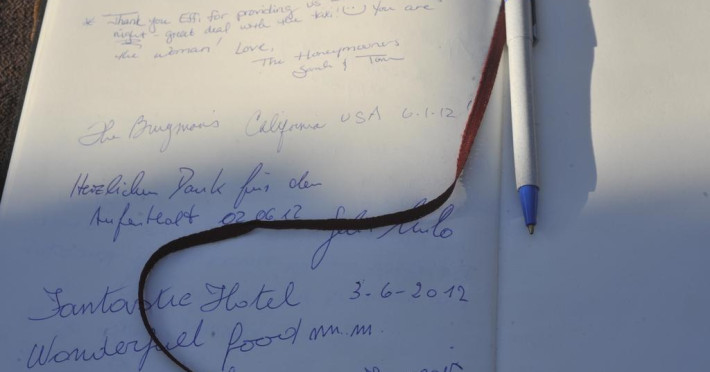 * Thank you Effi for providing us
night - great deal with the taxi! You are
the woman! Love,
The Honeymooners
Sarah & Tom
The Brugman's California USA 6.1.12!
Herzlichen Dank fürs den
Aufenthalt 02.06.12
Fantastic Hotel 3-6-2012
Wonderfull food mm.m.